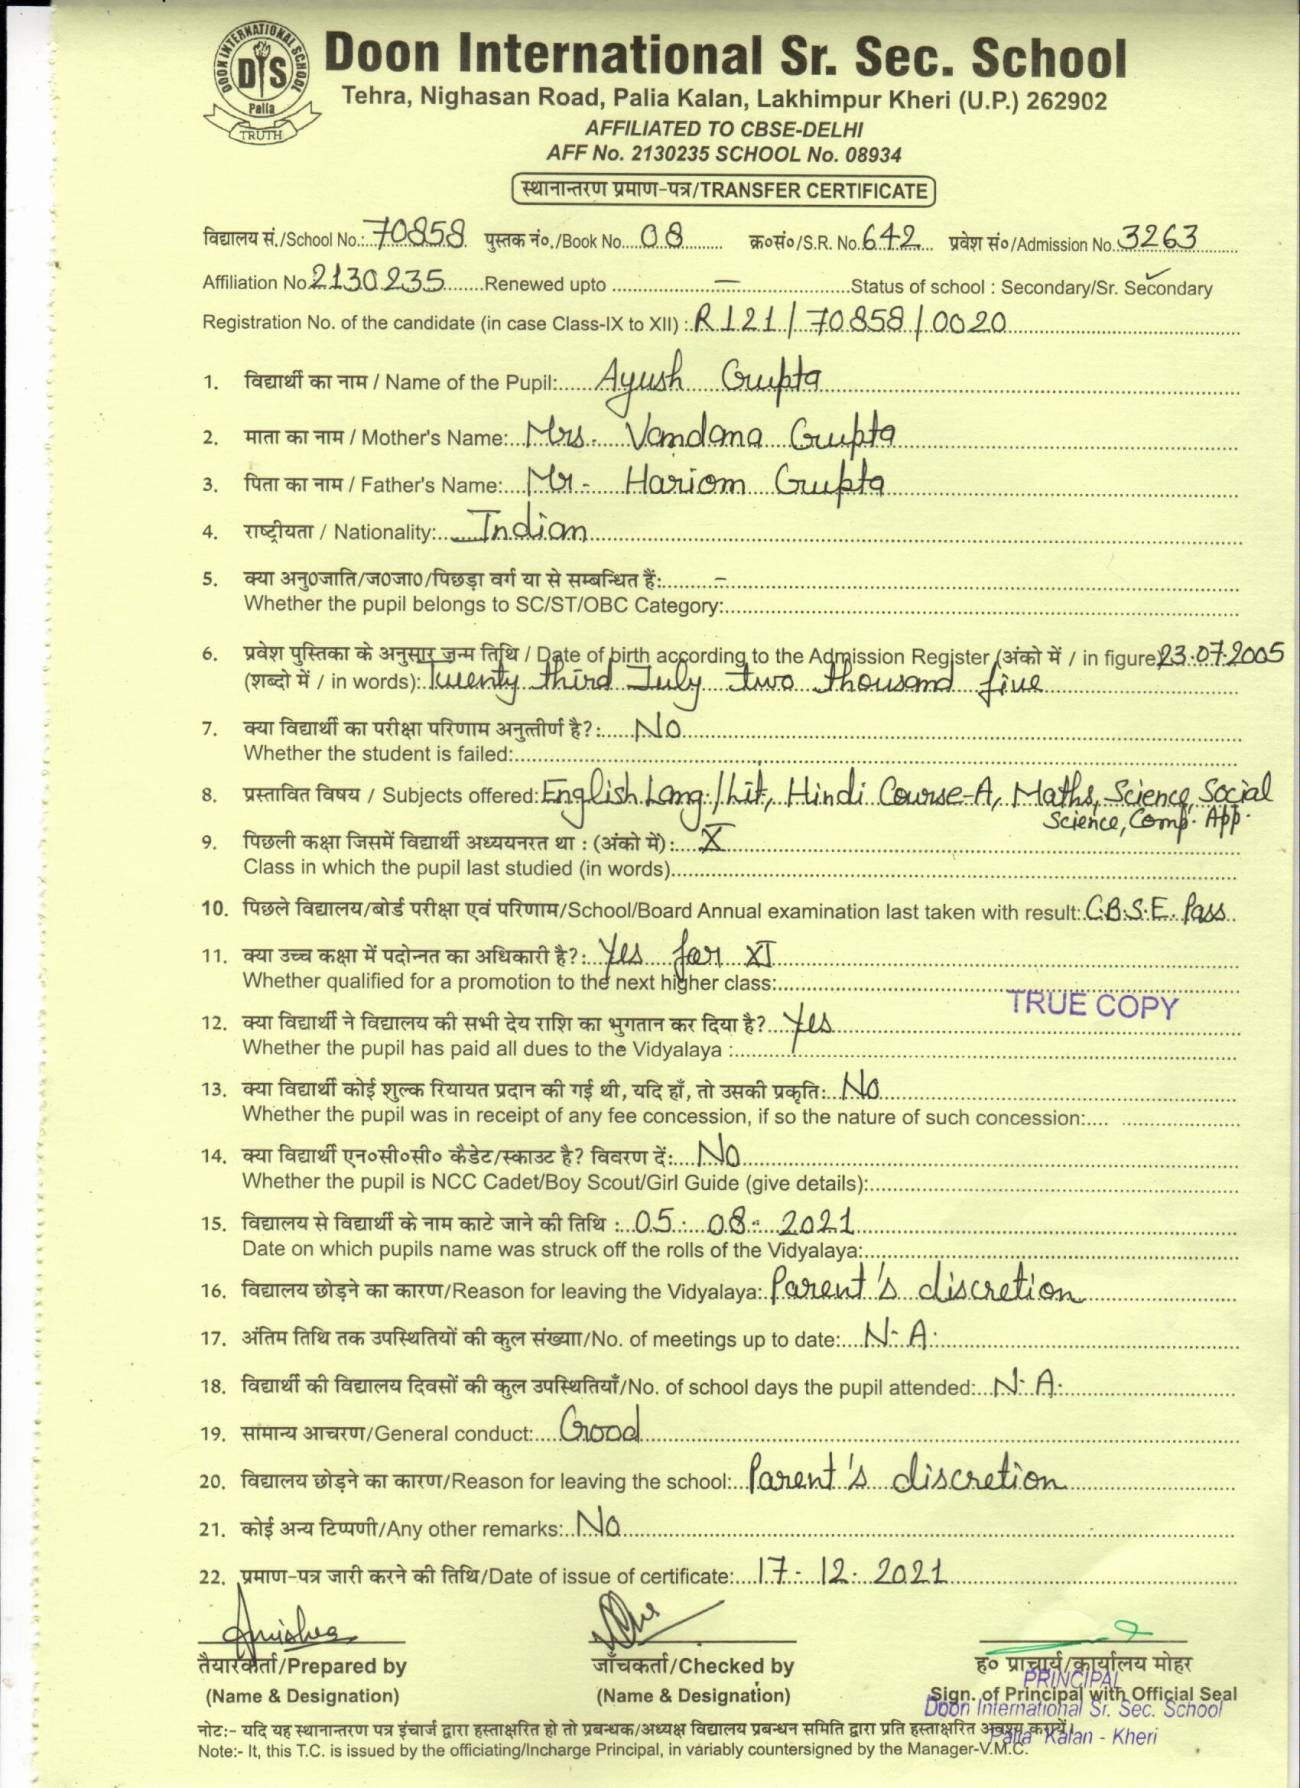 DOON INTERNATIONAL SCHOOL
DIS
Palia
TRUTH
Doon International Sr. Sec. School
Tehra, Nighasan Road, Palia Kalan, Lakhimpur Kheri (U.P.) 262902
AFFILIATED TO CBSE-DELHI
AFF No. 2130235 SCHOOL No. 08934
स्थानान्तरण प्रमाण-पत्र/TRANSFER CERTIFICATE
विद्यालय सं./School No.: 70858 पुस्तक नं०./Book No. 08 क्र०सं०/S.R. No. 642 प्रवेश सं०/Admission No. 3263
Affiliation No 2130235 Renewed upto – Status of school : Secondary/Sr. Secondary
Registration No. of the candidate (in case Class-IX to XII) : R121/70858/0020
1. विद्यार्थी का नाम / Name of the Pupil: Ayush Gupta
2. माता का नाम / Mother's Name: Mrs. Vandana Gupta
3. पिता का नाम / Father's Name: Mr. Hariom Gupta
4. राष्ट्रीयता / Nationality: Indian
5. क्या अनु0जाति/ज0जा0/पिछड़ा वर्ग या से सम्बन्धित हैं: –
Whether the pupil belongs to SC/ST/OBC Category:
6. प्रवेश पुस्तिका के अनुसार जन्म तिथि / Date of birth according to the Admission Register (अंको में / in figure) 23.07.2005
(शब्दो में / in words): Twenty third July two thousand five
7. क्या विद्यार्थी का परीक्षा परिणाम अनुत्तीर्ण है?: No
Whether the student is failed:
8. प्रस्तावित विषय / Subjects offered: English Lang./Lit, Hindi Course-A, Maths, Science, Social
Science, Comp. App.
9. पिछली कक्षा जिसमें विद्यार्थी अध्ययनरत था : (अंको में): X
Class in which the pupil last studied (in words)
10. पिछले विद्यालय/बोर्ड परीक्षा एवं परिणाम/School/Board Annual examination last taken with result: C.B.S.E. Pass
11. क्या उच्च कक्षा में पदोन्नत का अधिकारी है?: Yes for XI
Whether qualified for a promotion to the next higher class:
TRUE COPY
12. क्या विद्यार्थी ने विद्यालय की सभी देय राशि का भुगतान कर दिया है? Yes
Whether the pupil has paid all dues to the Vidyalaya :
13. क्या विद्यार्थी कोई शुल्क रियायत प्रदान की गई थी, यदि हाँ, तो उसकी प्रकृति: No
Whether the pupil was in receipt of any fee concession, if so the nature of such concession:
14. क्या विद्यार्थी एन०सी०सी० कैडेट/स्काउट है? विवरण दें: No
Whether the pupil is NCC Cadet/Boy Scout/Girl Guide (give details):
15. विद्यालय से विद्यार्थी के नाम काटे जाने की तिथि : 05. 08. 2021
Date on which pupils name was struck off the rolls of the Vidyalaya:
16. विद्यालय छोड़ने का कारण/Reason for leaving the Vidyalaya: Parent's discretion
17. अंतिम तिथि तक उपस्थितियों की कुल संख्याा/No. of meetings up to date: N. A.
18. विद्यार्थी की विद्यालय दिवसों की कुल उपस्थितियाँ/No. of school days the pupil attended: N. A.
19. सामान्य आचरण/General conduct: Good
20. विद्यालय छोड़ने का कारण/Reason for leaving the school: Parent's discretion
21. कोई अन्य टिप्पणी/Any other remarks: No
22. प्रमाण-पत्र जारी करने की तिथि/Date of issue of certificate: 17. 12. 2021
तैयारकर्ता/Prepared by जाँचकर्ता/Checked by ह० प्राचार्य/कार्यालय मोहर
PRINCIPAL
(Name & Designation) (Name & Designation) Sign. of Principal with Official Seal
Doon International Sr. Sec. School
नोटः- यदि यह स्थानान्तरण पत्र इंचार्ज द्वारा हस्ताक्षरित हो तो प्रबन्धक/अध्यक्ष विद्यालय प्रबन्धन समिति द्वारा प्रति हस्ताक्षरित अवश्य करायें।
Palia Kalan - Kheri
Note:- It, this T.C. is issued by the officiating/Incharge Principal, in variably countersigned by the Manager-V.M.C.